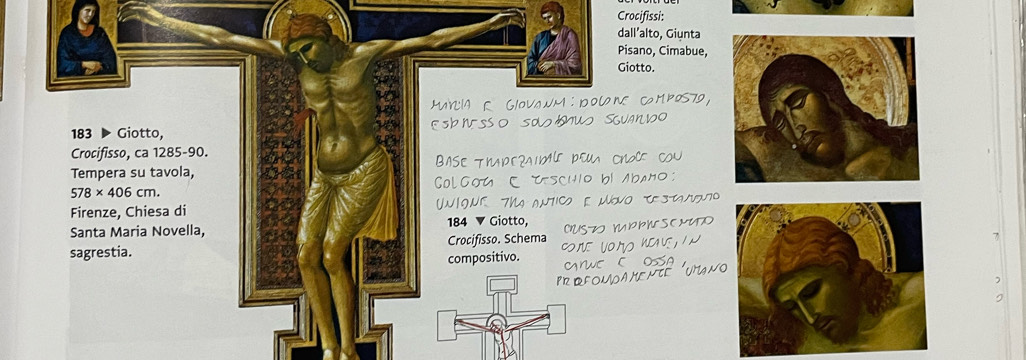 dei volti dei
Crocifissi:
dall'alto, Giunta
Pisano, Cimabue,
Giotto.
MARIA E GIOVANNI: DOLORE COMPOSTO,
ESPRESSO SGUARDO
183 ▶ Giotto,
Crocifisso, ca 1285-90.
Tempera su tavola,
578 × 406 cm.
Firenze, Chiesa di
Santa Maria Novella,
sagrestia.
BASE TRAPEZOIDALE DELLA CROCE CON
GOLGOTA E TESCHIO DI ADAMO:
UNIONE TRA ANTICO E NUOVO TESTAMENTO
184 ▼ Giotto,
Crocifisso. Schema
compositivo.
CRISTO RAPPRESENTATO
COME UOMO REALE, IN
CARNE E OSSA,
PROFONDAMENTE UMANO